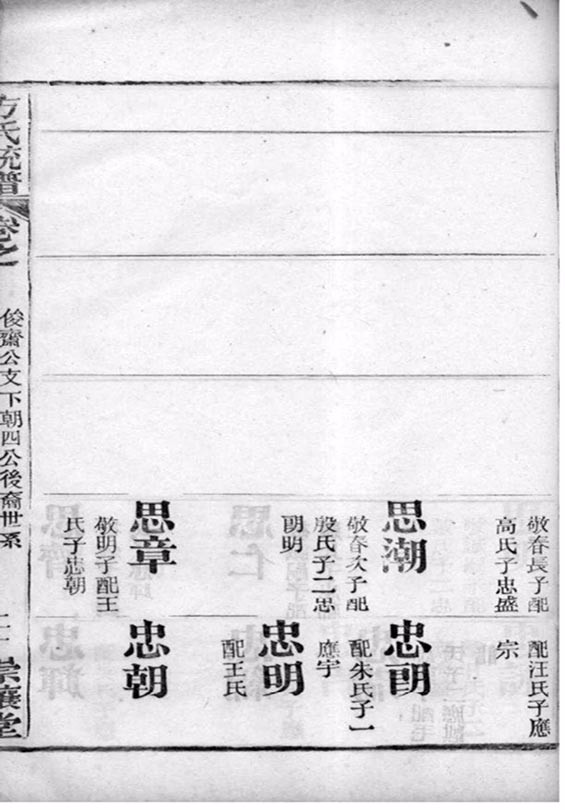 敬春長子配
高氏子忠盛
思潮
敬春次子配
殷氏子二忠
朗明
思章
敬明子配王
氏子忠朝
配汪氏子應
宗
忠朗
配朱氏子一
應宇
忠明
配王氏
忠朝
方氏統譜
卷之
俊齋公支下朝四公後裔世系
堂